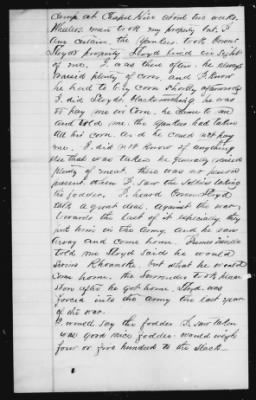 Camp at Chapel Hill about two weeks.
Wheelers men took my property but I
am certain the Yankees took
Lloyds property Lloyd lived in sight
of me. I was there often. he always
raised plenty of corn, and I know
he had to buy corn shortly afterwards
I did Lloyds Blacksmithing he was
to pay me in corn. he came to me
and told me the Yankees had taken
all his corn and he could not pay
me. I did not know of anything
else that was taken he generally raised
plenty of meat. There was no person
present when I saw the soldiers taking
the fodder. I heard Lloyd
talk a great deal, against the war,
towards the last of it especially they
put him in the army, and he
away and came home.
told me Lloyd said he would
but what he would
come home. the Surrender took place
soon after he got home. Lloyd was
forced into the army the last year
of the war.
I would say the fodder I saw taken
was good nice fodder would weigh
four or five hundred to the stack.